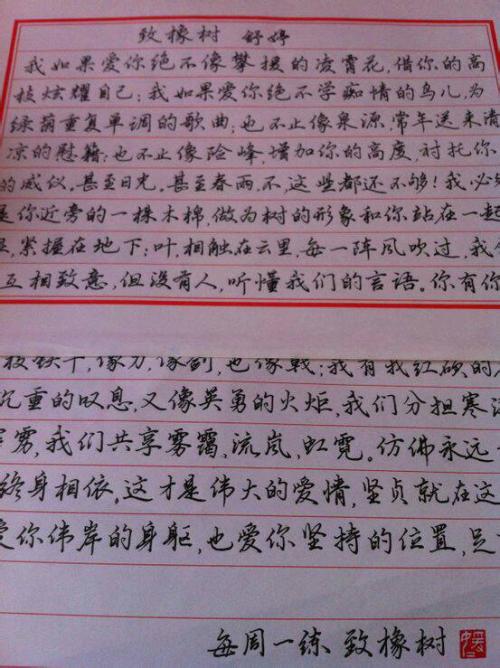 致橡树 舒婷
我如果爱你绝不像攀援的凌霄花,借你的高
枝炫耀自己;我如果爱你绝不学痴情的鸟儿,为
绿荫重复单调的歌曲;也不止像泉源,常年送来清
凉的慰籍;也不止像险峰,增加你的高度,衬托你
的威仪,甚至日光。甚至春雨,不,这些都还不够!我必
是你近旁的一株木棉,做为树的形象和你站在一起
紧握在地下;叶,相触在云里,每一阵风吹过,我
互相致意,但没有人,听懂我们的言语。你有你
枝铁干,像刀,像剑,也像戟;我有我红硕的
沉重的叹息,又像英勇的火炬,我们分担寒
雳,我们共享雾霭,流岚,虹霓。仿佛永远
终身相依。这才是伟大的爱情,坚贞就在这
爱你伟岸的身躯,也爱你坚持的位置,足
每周一练 致橡树